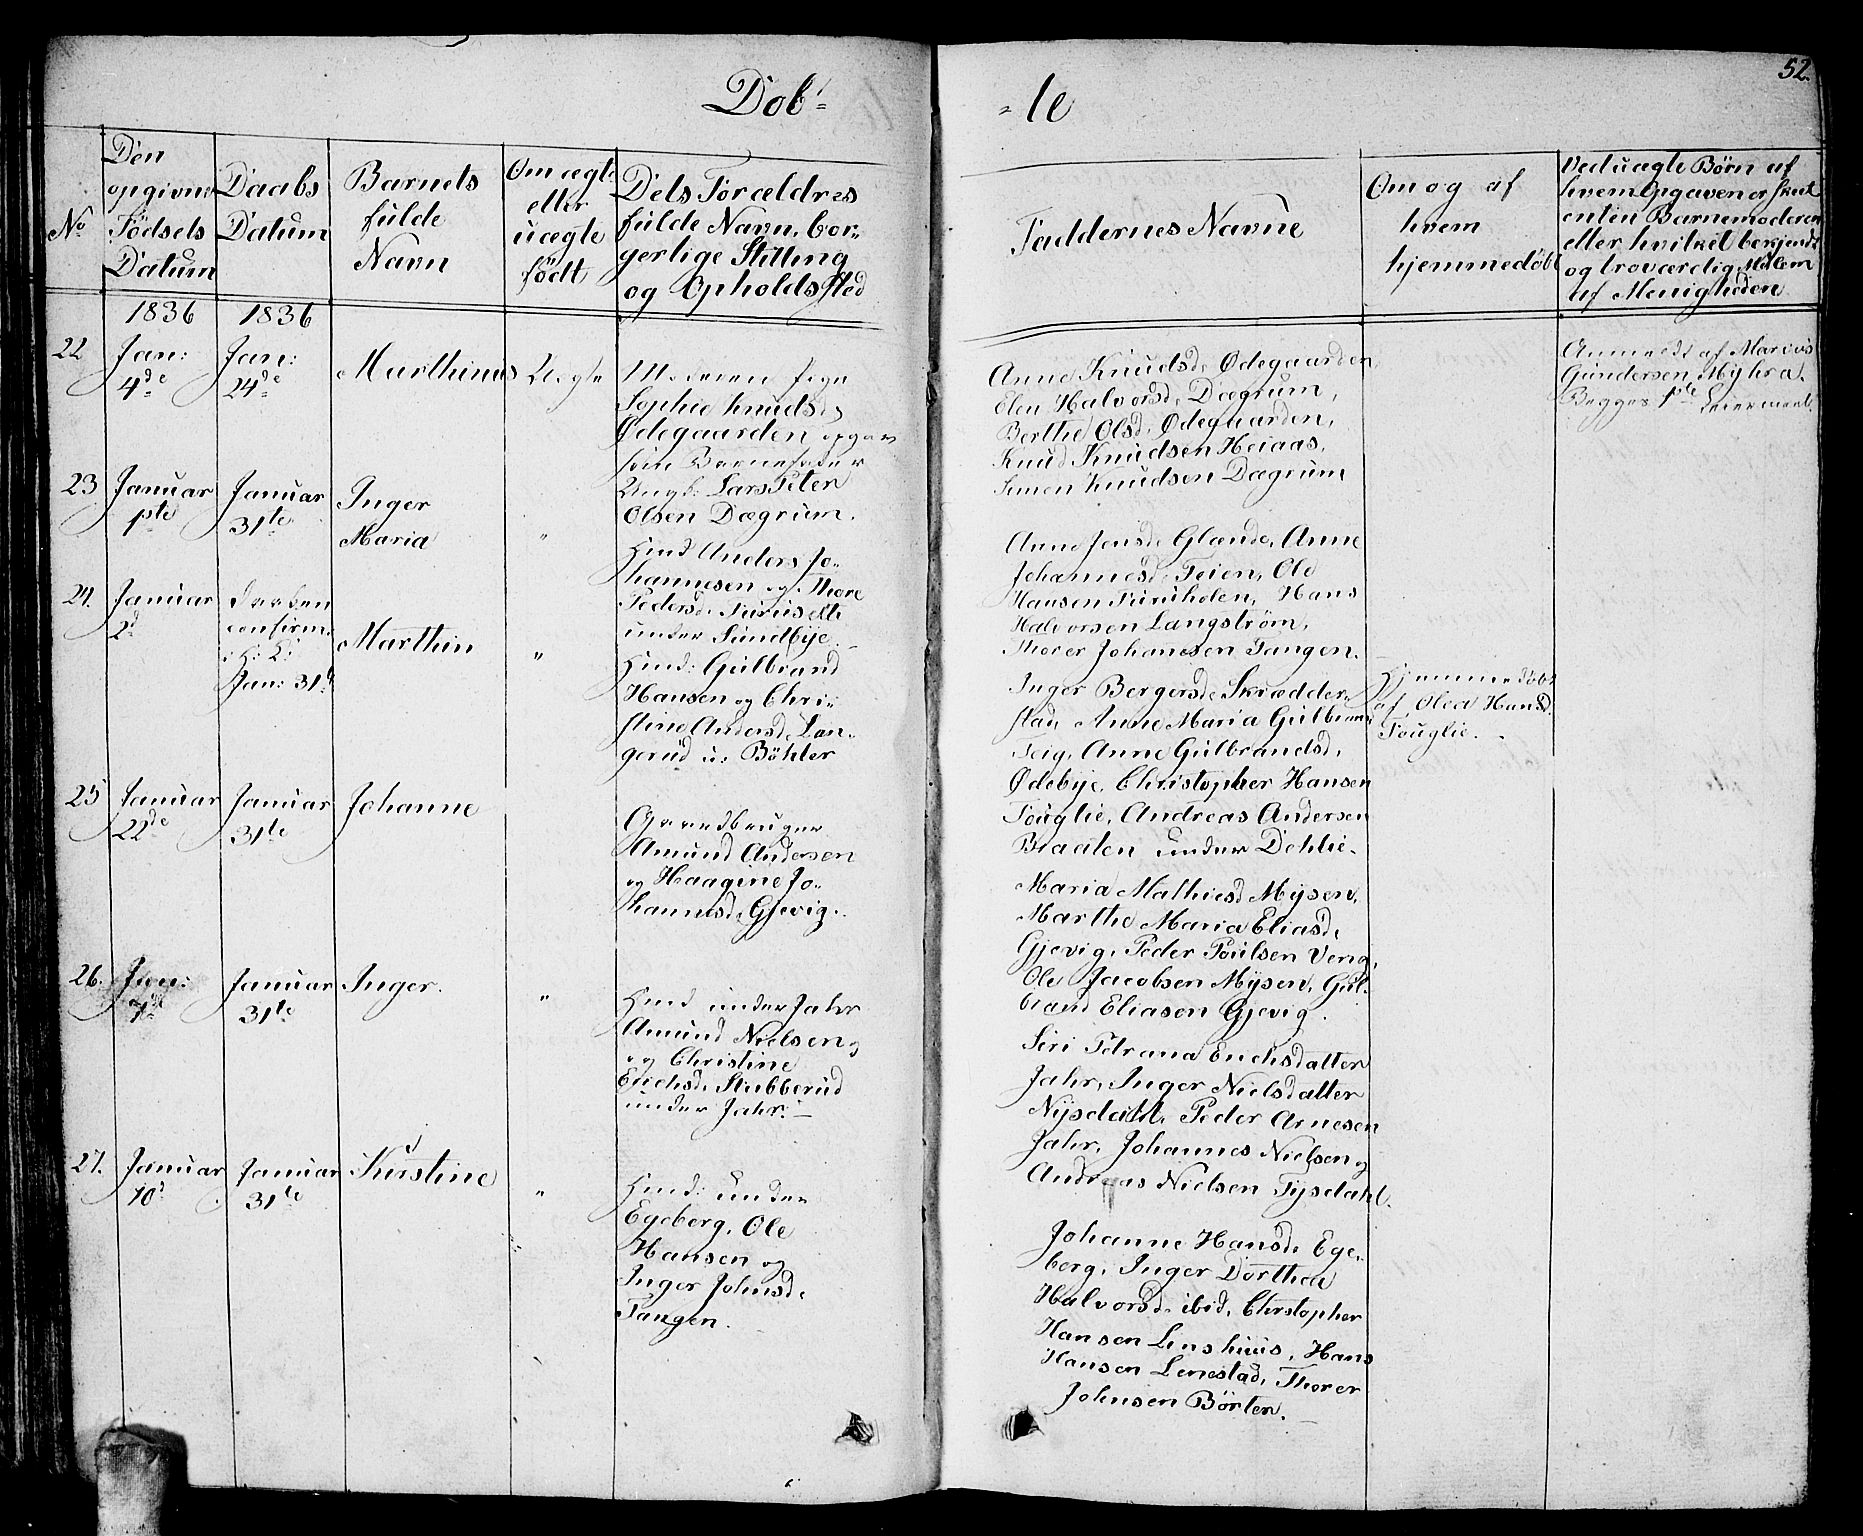 52.
Døb-
-te
No
Den
opgivne
Födsels
Datum
Daabs
Datum
Barnets
fulde
Navn
Om ægte
eller
uægte
født
Dets Forældres
fulde Navn, bor-
gerlige Stilling
og Opholdssted
Faddernes Navne
Om og af
hvem
hjemmedøbt
Ved uægte Børn af
hvem Opgaven er skeet
enten Barnemoderen
eller hvilket bekjendt
og troværdig Medlem
af Menigheden
1836
1836
22
Jan:
4de
Jan:
24de
Marthinus
Uægte
Moderen Pige
Sophie Knudsd.
Ødegaarden opgav
som Barnefader
Ungk: Lars Peter
Olsen Dægrum.
Anne Knudsd. Ødegaarden,
Elen Halvorsd. Dægrum,
Berthe Olsd. Ødegaarden,
Knud Knudsen Heiaas,
Simen Knudsen Dægrum
Anmeldt af Marius
Gundersen Myhra.
Begges 1ste Leiermaal.
23
Januar
1ste
Januar
31te
Inger
Maria
"
Huusd Anders Jo-
hannesen og Thore
Pedersd.
under Sundbye.
Anne Jensd. Glænde, Anne
Johannesd. Teien, Ole
Hansen Furuholen, Hans
Halvorsen Langstrøm,
Thorer Johansen Tangen.
24.
Januar
2d
Daaben
confirm.
i K:
Jan: 31te
Marthin
"
Huusd: Gulbrand
Hansen og Chri-
stine Andersd. Lan-
gerud u: Böhler
Inger Bergersd. Skrædder-
stad, Anne Maria Gulbrands
Teig, Anne Gulbrandsd.
Ødebye, Christopher Hansen
Fouglie, Andreas Andersen
Braaten under Dehlie.
Hjemmedøbt
af Olea Hansd.
Fouglie.
25
Januar
22de
Januar
31te
Johanne
Gaardbruger
Amund Andersen
og Haagine Jo-
hannesd. Gjevig.
Maria Mathiesd Mysen,
Marthe Maria Eliasd.
Gjevig, Peder Poulsen Veng,
Ole Jacobsen Mysen, Gul-
brand Eliasen Gjevig.
26.
Jan:
7de
Januar
31te
Inger.
"
Huusd under Jahr
Amund Nielsen
og Christine
Erichsd. Stubberud
under Jahr.
Siri Petrana Erichsdatter
Jahr, Inger Nielsdatter
Nysdahl, Peder Arnesen
Jahr, Johannes Nielsen og
Andreas Nielsen Tysdahl.
27.
Januar
10de
Januar
31te
Kirstine
"
Huusd: under
Egeberg, Ole
Hansen og
Inger Johnsd.
Tangen.
Johanne Hansd. Ege-
berg, Inger Dorthea
Halvorsd. ibid, Christopher
Hansen Linshuus, Hans
Hansen Lenestad, Thorer
Johnsen Børten.